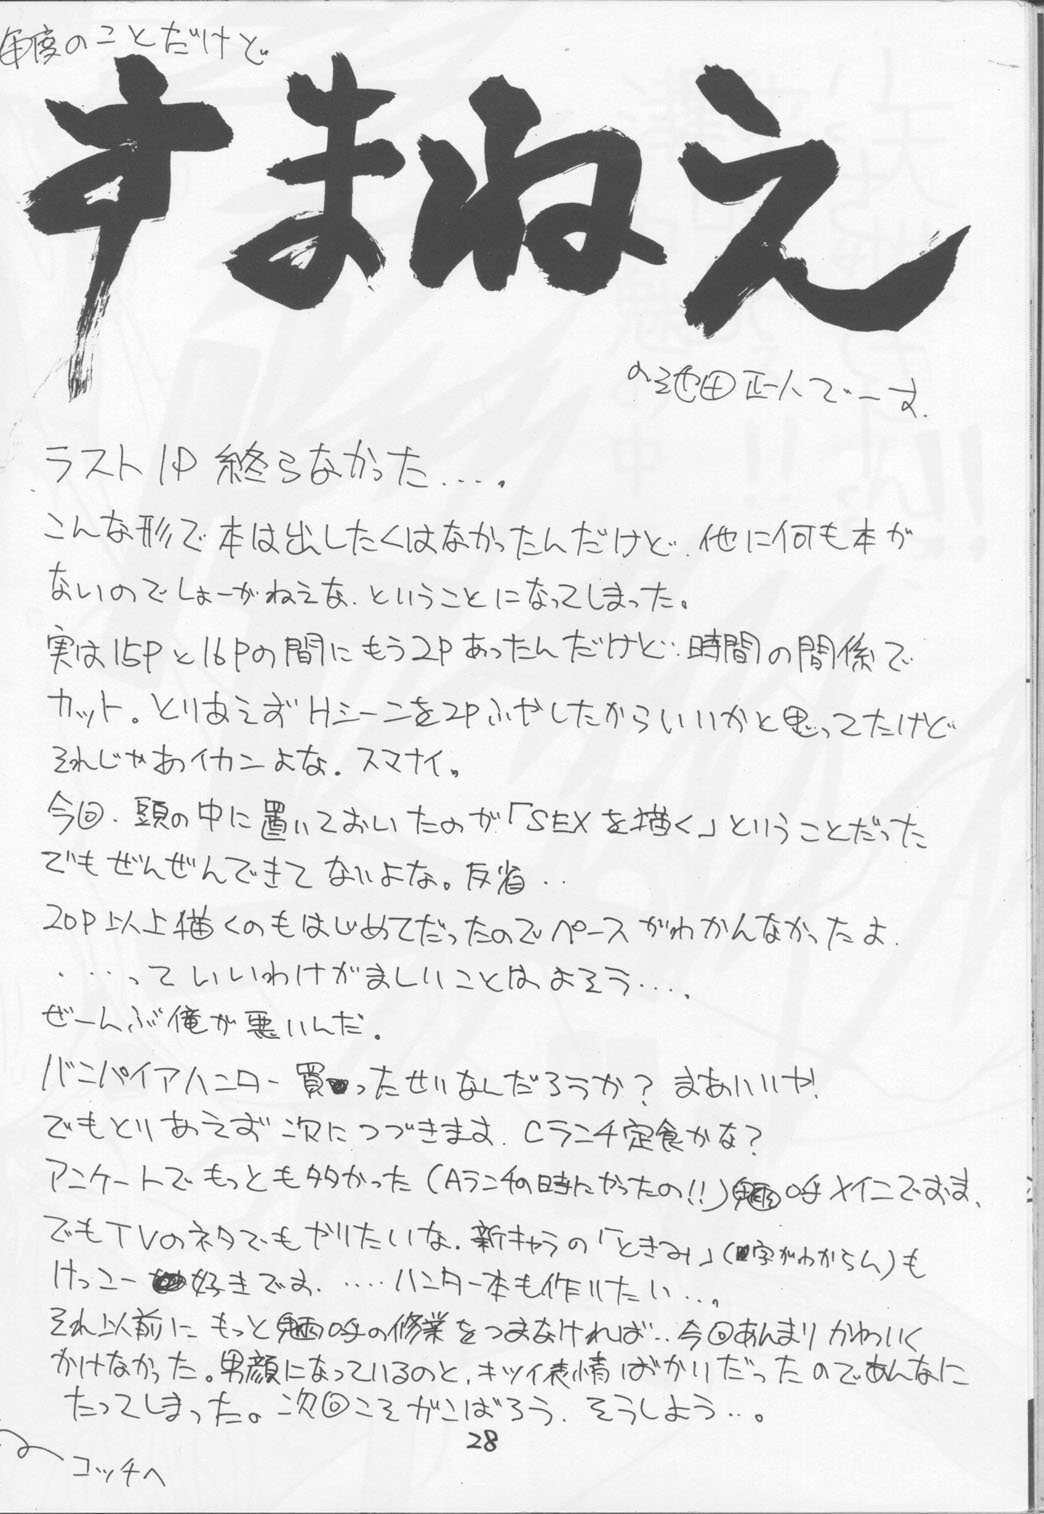 毎度のことだけど
すまねえ
の池田正人でーす.
ラスト1P 終らなかった....。
こんな形で本は出したくはなかったんだけど、他に何も本が
ないのでしょーがねえな、ということになってしまった。
実は15Pと16Pの間にもう2Pあったんだけど、時間の関係で
カット。とりあえずHシーンを2Pふやしたからいいかと思ってたけど
それじゃあイカンよな。スマナイ。
今回、頭の中に置いておいたのが「SEXを描く」ということだった
でもぜんぜんできてないよな。反省‥
20P以上描くのもはじめてだったのでペースがわかんなかったよ.
....っていいわけがましいことはよそう...。
ぜーんぶ俺が悪いんだ。
バンパイアハンター買ったせいなんだろうか？まあいいや!
でもとりあえず次につづきます。Cランチ定食かな？
アンケートでもっとも多かった(Aランチの時にかったの!!)魎呼メインでおます、
でもTVのネタでもやりたいな。新キャラの「ときみ」(字がわからん)も
けっこー好きです。....ハンター本も作りたい...。
それ以前にもっと魎呼の修業をつまなければ‥今回あんまりかわいく
かけなかった。男顔になっているのと、キツイ表情ばかりだったのであんなに
なってしまった。次回こそがんばろう、そうしよう...。
28
コッチへ